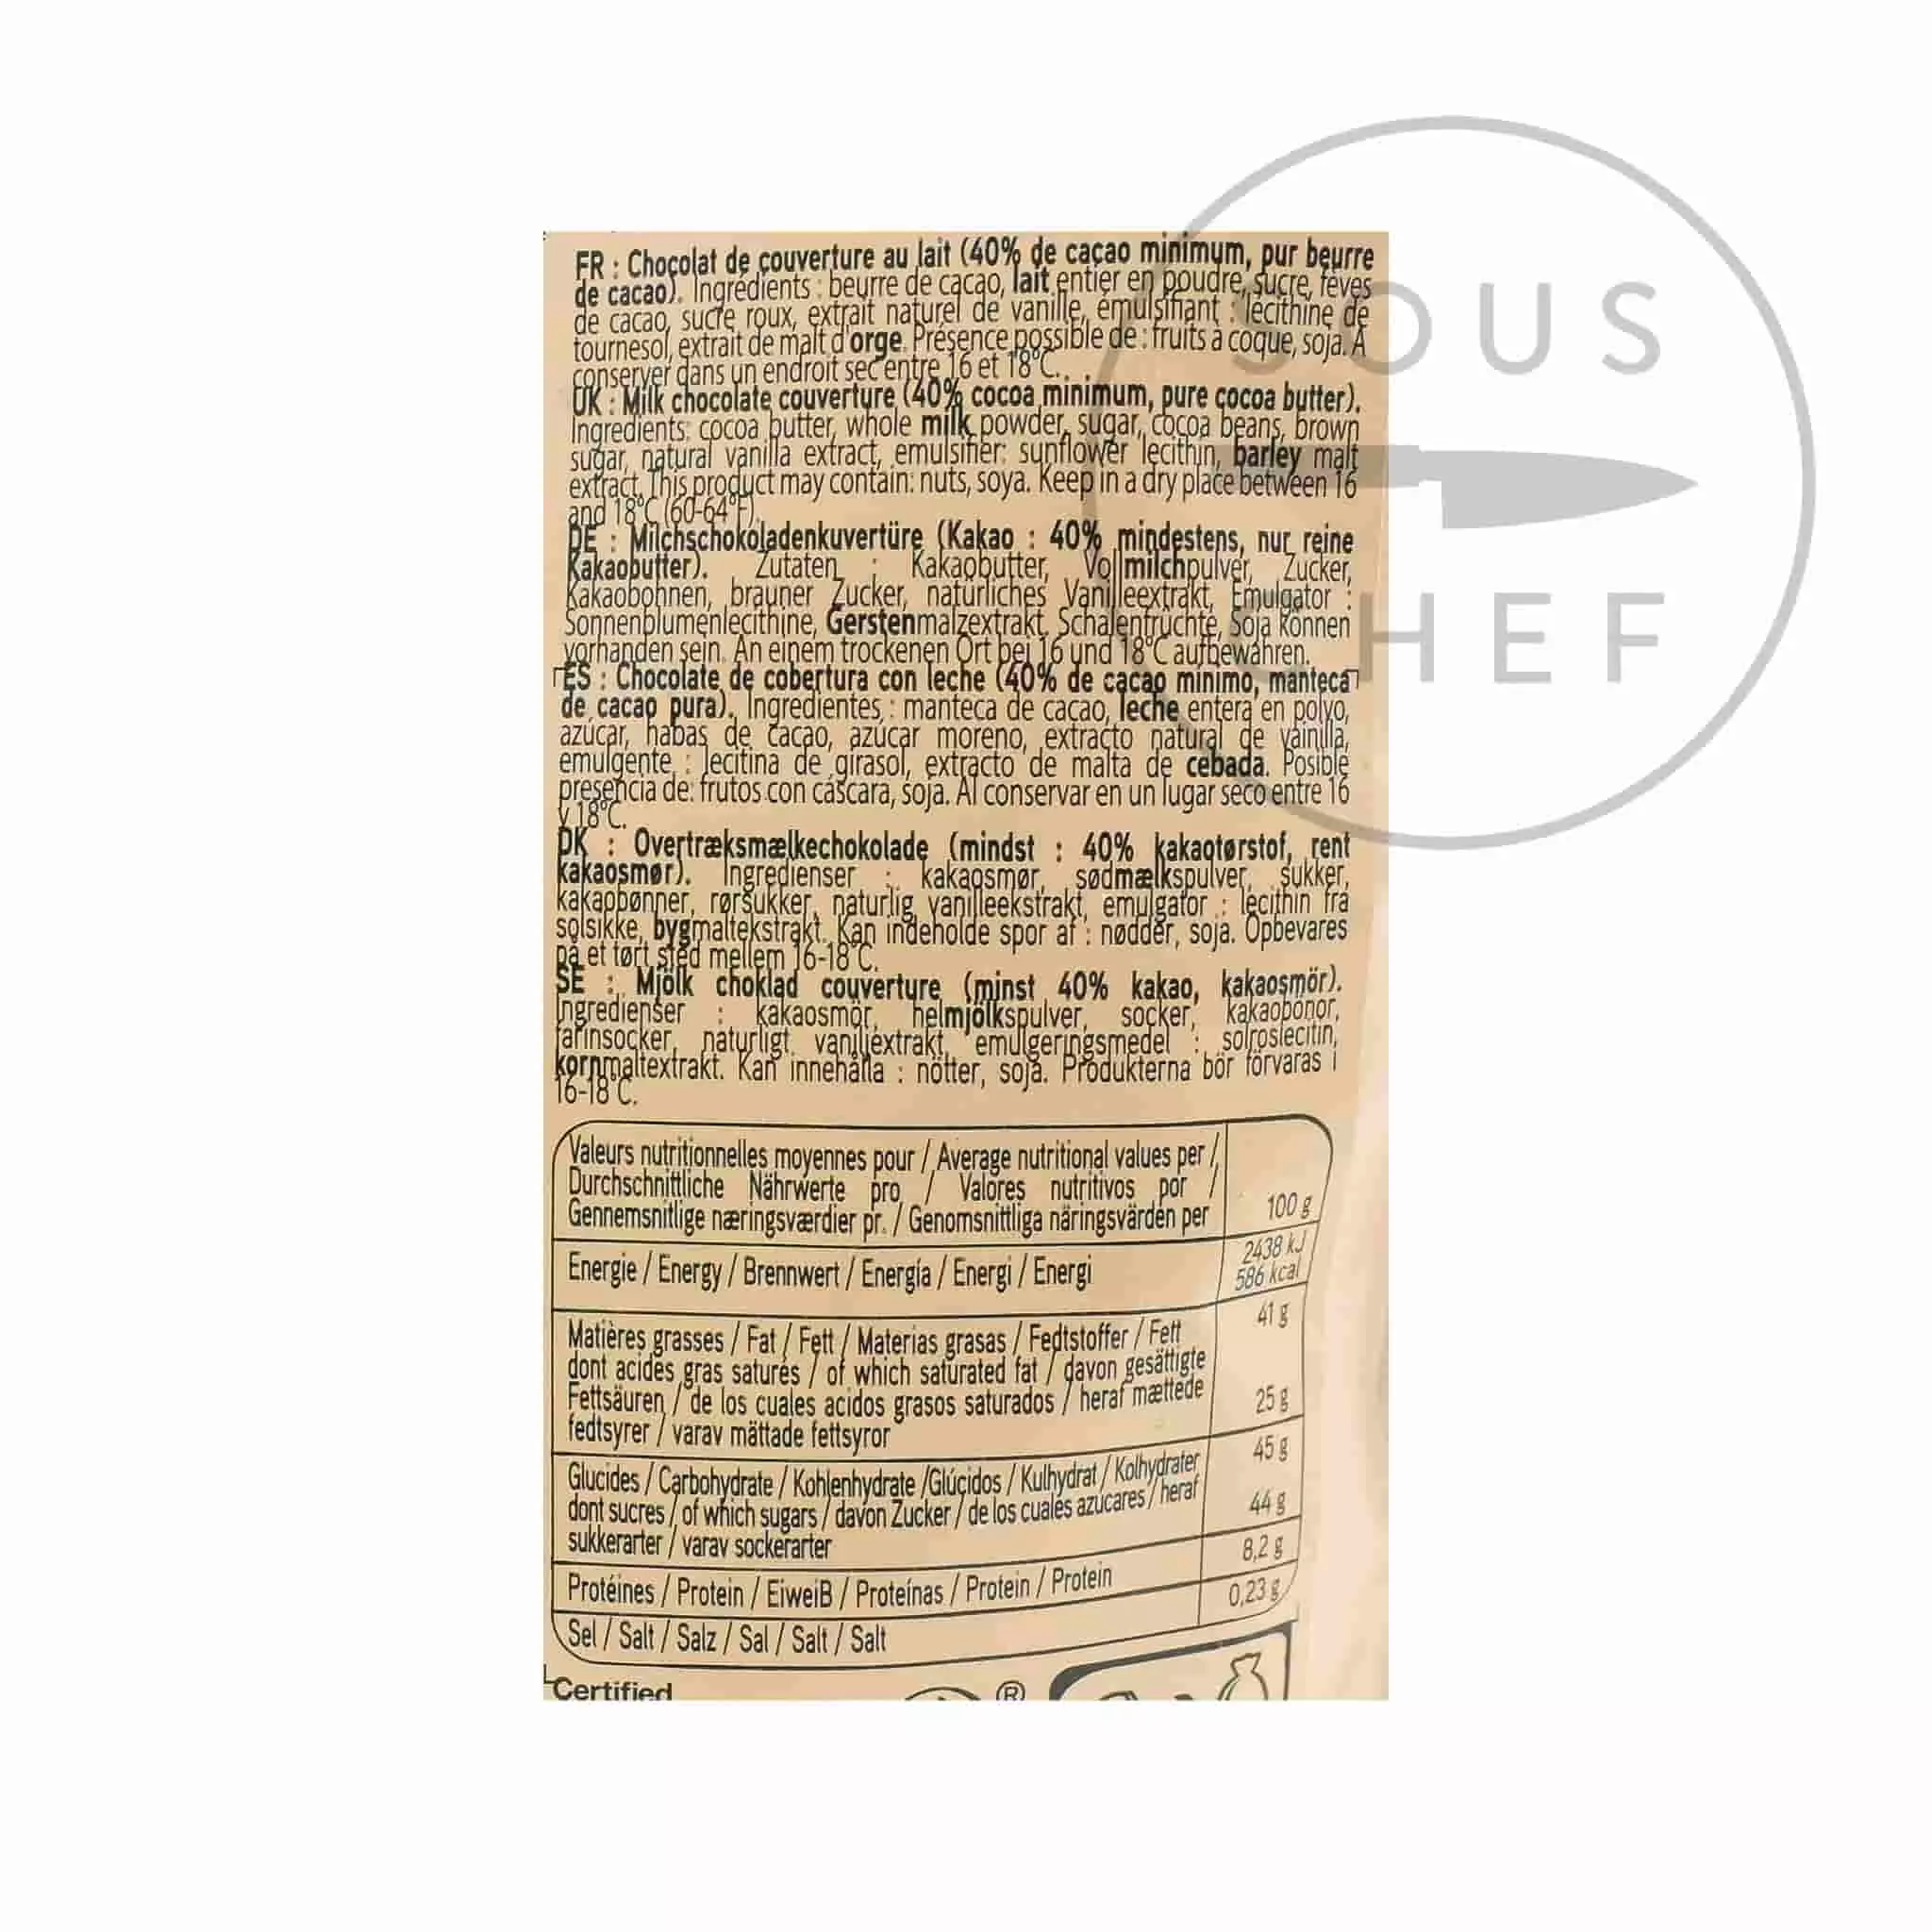 FR : Chocolat de couverture au lait (40% de cacao minimum, pur beurre
de cacao). Ingrédients : beurre de cacao, lait entier en poudre, sucre, fèves
de cacao, sucre roux, extrait naturel de vanille, émulsifiant : lécithine de
tournesol, extrait de malt d'orge. Présence possible de : fruits à coque, soja. A
conserver dans un endroit sec entre 16 et 18°C.
UK : Milk chocolate couverture (40% cocoa minimum, pure cocoa butter).
Ingredients: cocoa butter, whole milk powder, sugar, cocoa beans, brown
sugar, natural vanilla extract, emulsifier: sunflower lecithin, barley malt
extract. This product may contain: nuts, soya. Keep in a dry place between 16
and 18°C (60-64°F).
DE : Milchschokoladenkuvertüre (Kakao : 40% mindestens, nur reine
Kakaobutter). Zutaten : Kakaobutter, Vollmilchpulver, Zucker,
Kakaobohnen, brauner Zucker, natürliches Vanilleextrakt, Emulgator :
Sonnenblumenlecithine, Gerstenmalzextrakt. Schalenfrüchte, Soja können
vorhanden sein. An einem trockenen Ort bei 16 und 18°C aufbewahren.
ES : Chocolate de cobertura con leche (40% de cacao mínimo, manteca
de cacao pura). Ingredientes : manteca de cacao, leche entera en polvo,
azúcar, habas de cacao, azúcar moreno, extracto natural de vainilla,
emulgente : lecitina de girasol, extracto de malta de cebada. Posible
presencia de: frutos con cáscara, soja. Al conservar en un lugar seco entre 16
y 18°C.
DK : Overtræksmælkechokolade (mindst : 40% kakaotørstof, rent
kakaosmør). Ingredienser : kakaosmør, sødmælkspulver, sukker,
kakaobønner, rørsukker, naturlig vanilleekstrakt, emulgator : lecithin fra
solsikke, bygmaltekstrakt. Kan indeholde spor af : nødder, soja. Opbevares
på et tørt sted mellem 16-18°C.
SE : Mjölk choklad couverture (minst 40% kakao, kakaosmör).
Ingredienser : kakaosmör, helmjölkspulver, socker, kakaobönor,
farinsocker, naturligt vaniljextrakt, emulgeringsmedel : solroslecitin,
kornmaltextrakt. Kan innehålla : nötter, soja. Produkterna bör förvaras i
16-18°C.
Valeurs nutritionnelles moyennes pour / Average nutritional values per /
Durchschnittliche Nährwerte pro / Valores nutritivos por /
Gennemsnitlige næringsværdier pr. / Genomsnittliga näringsvärden per 100 g
Energie / Energy / Brennwert / Energía / Energi / Energi 2438 kJ
586 kcal
Matières grasses / Fat / Fett / Materias grasas / Fedtstoffer / Fett 41 g
dont acides gras saturés / of which saturated fat / davon gesättigte
Fettsäuren / de los cuales acidos grasos saturados / heraf mættede 25 g
fedtsyrer / varav mättade fettsyror
Glucides / Carbohydrate / Kohlenhydrate /Glúcidos / Kulhydrat / Kolhydrater 45 g
dont sucres / of which sugars / davon Zucker / de los cuales azucares / heraf 44 g
sukkerarter / varav sockerarter
Protéines / Protein / EiweiB / Proteínas / Protein / Protein 8,2 g
Sel / Salt / Salz / Sal / Salt / Salt 0,23 g
Certified ®
SOUS
CHEF